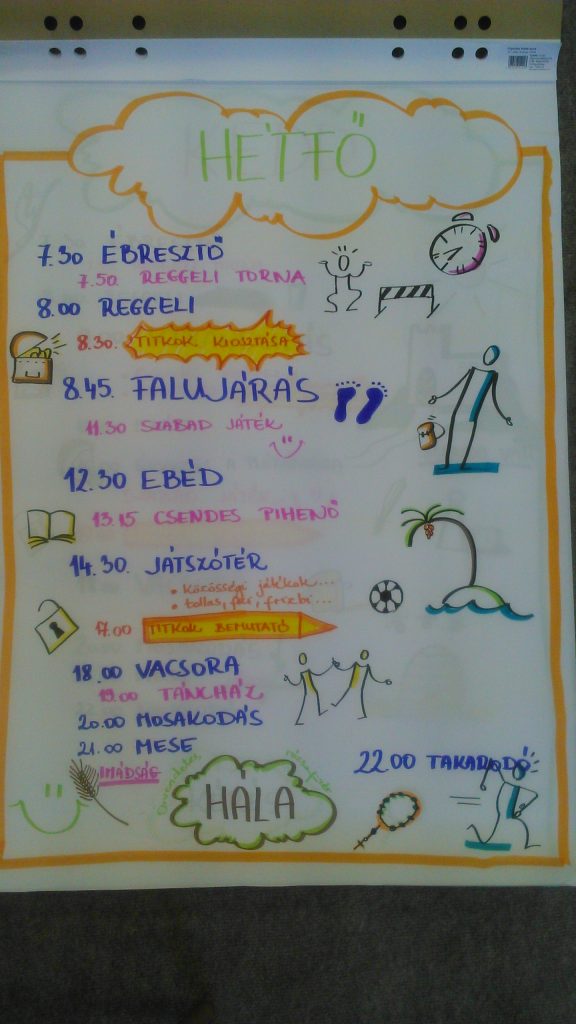 HÉTFŐ
7.30 ÉBRESZTŐ
7.50. REGGELI TORNA
8.00 REGGELI
8.30. TITKOK KIOSZTÁSA
8.45. FALUJÁRÁS
11.30 SZABAD JÁTÉK
12.30 EBÉD
13.15 CSENDES PIHENŐ
14.30. JÁTSZÓTÉR
• közösségi játékok...
• tollas, foci, frizbi...
17.00 TITKOK BEMUTATÓ
18.00 VACSORA
19.00 TÁNCHÁZ
20.00 MOSAKODÁS
21.00 MESE
IMÁDSÁG
22.00 TAKARODÓ
HÁLA